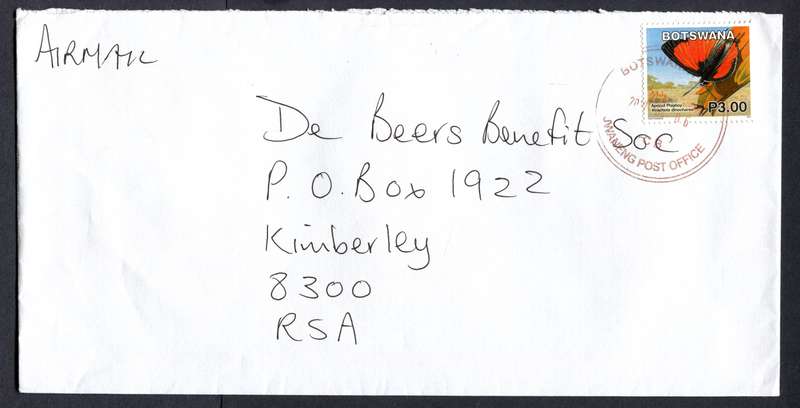 AIRMAIL
BOTSWANA
P3.00
BOTSWANA
JWANENG POST OFFICE
De Beers Benefit Soc
P.O. Box 1922
Kimberley
8300
RSA